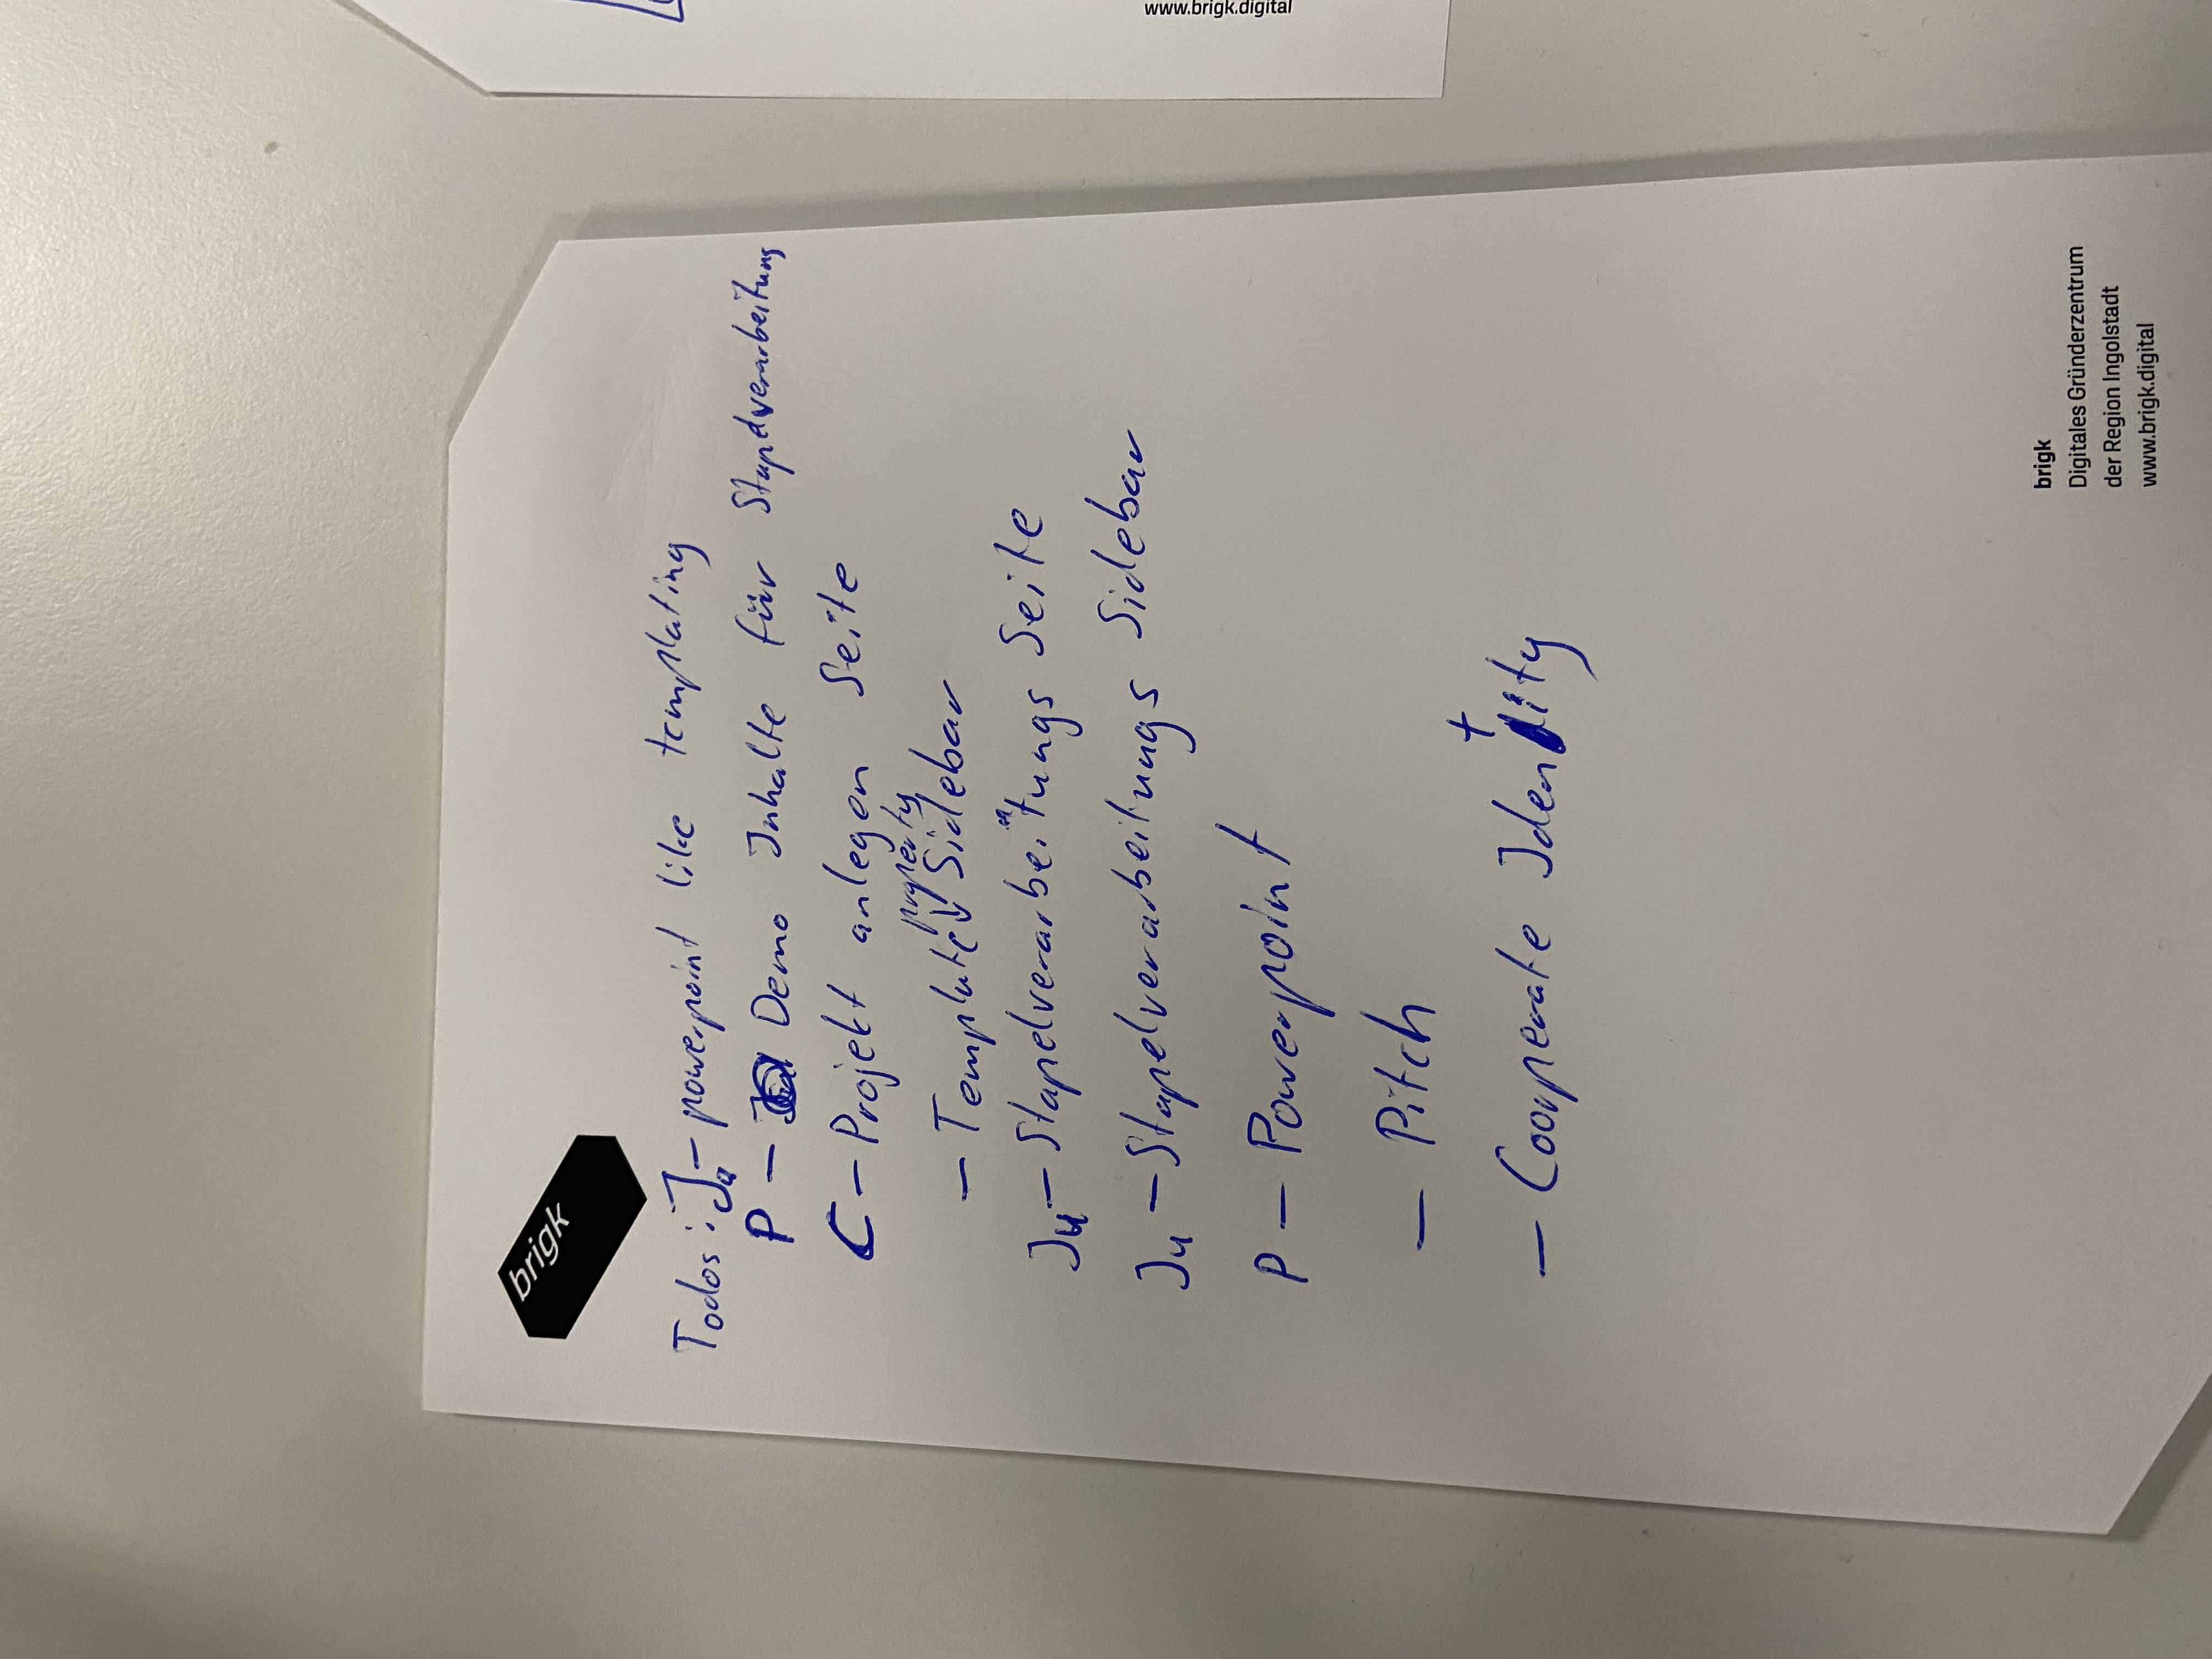 brigk
Todos: Ja - powerpoint like templating
P - Demo Inhalte für Stapelverarbeitung
C - Projekt anlegen Seite
property
- Template Sidebar
Ju - Stapelverarbeitungs Seite
Ju - Stapelverarbeitungs Sidebar
P - Powerpoint
- Pitch
t
- Coorperate Identity
brigk
Digitales Gründerzentrum
der Region Ingolstadt
www.brigk.digital
www.brigk.digital